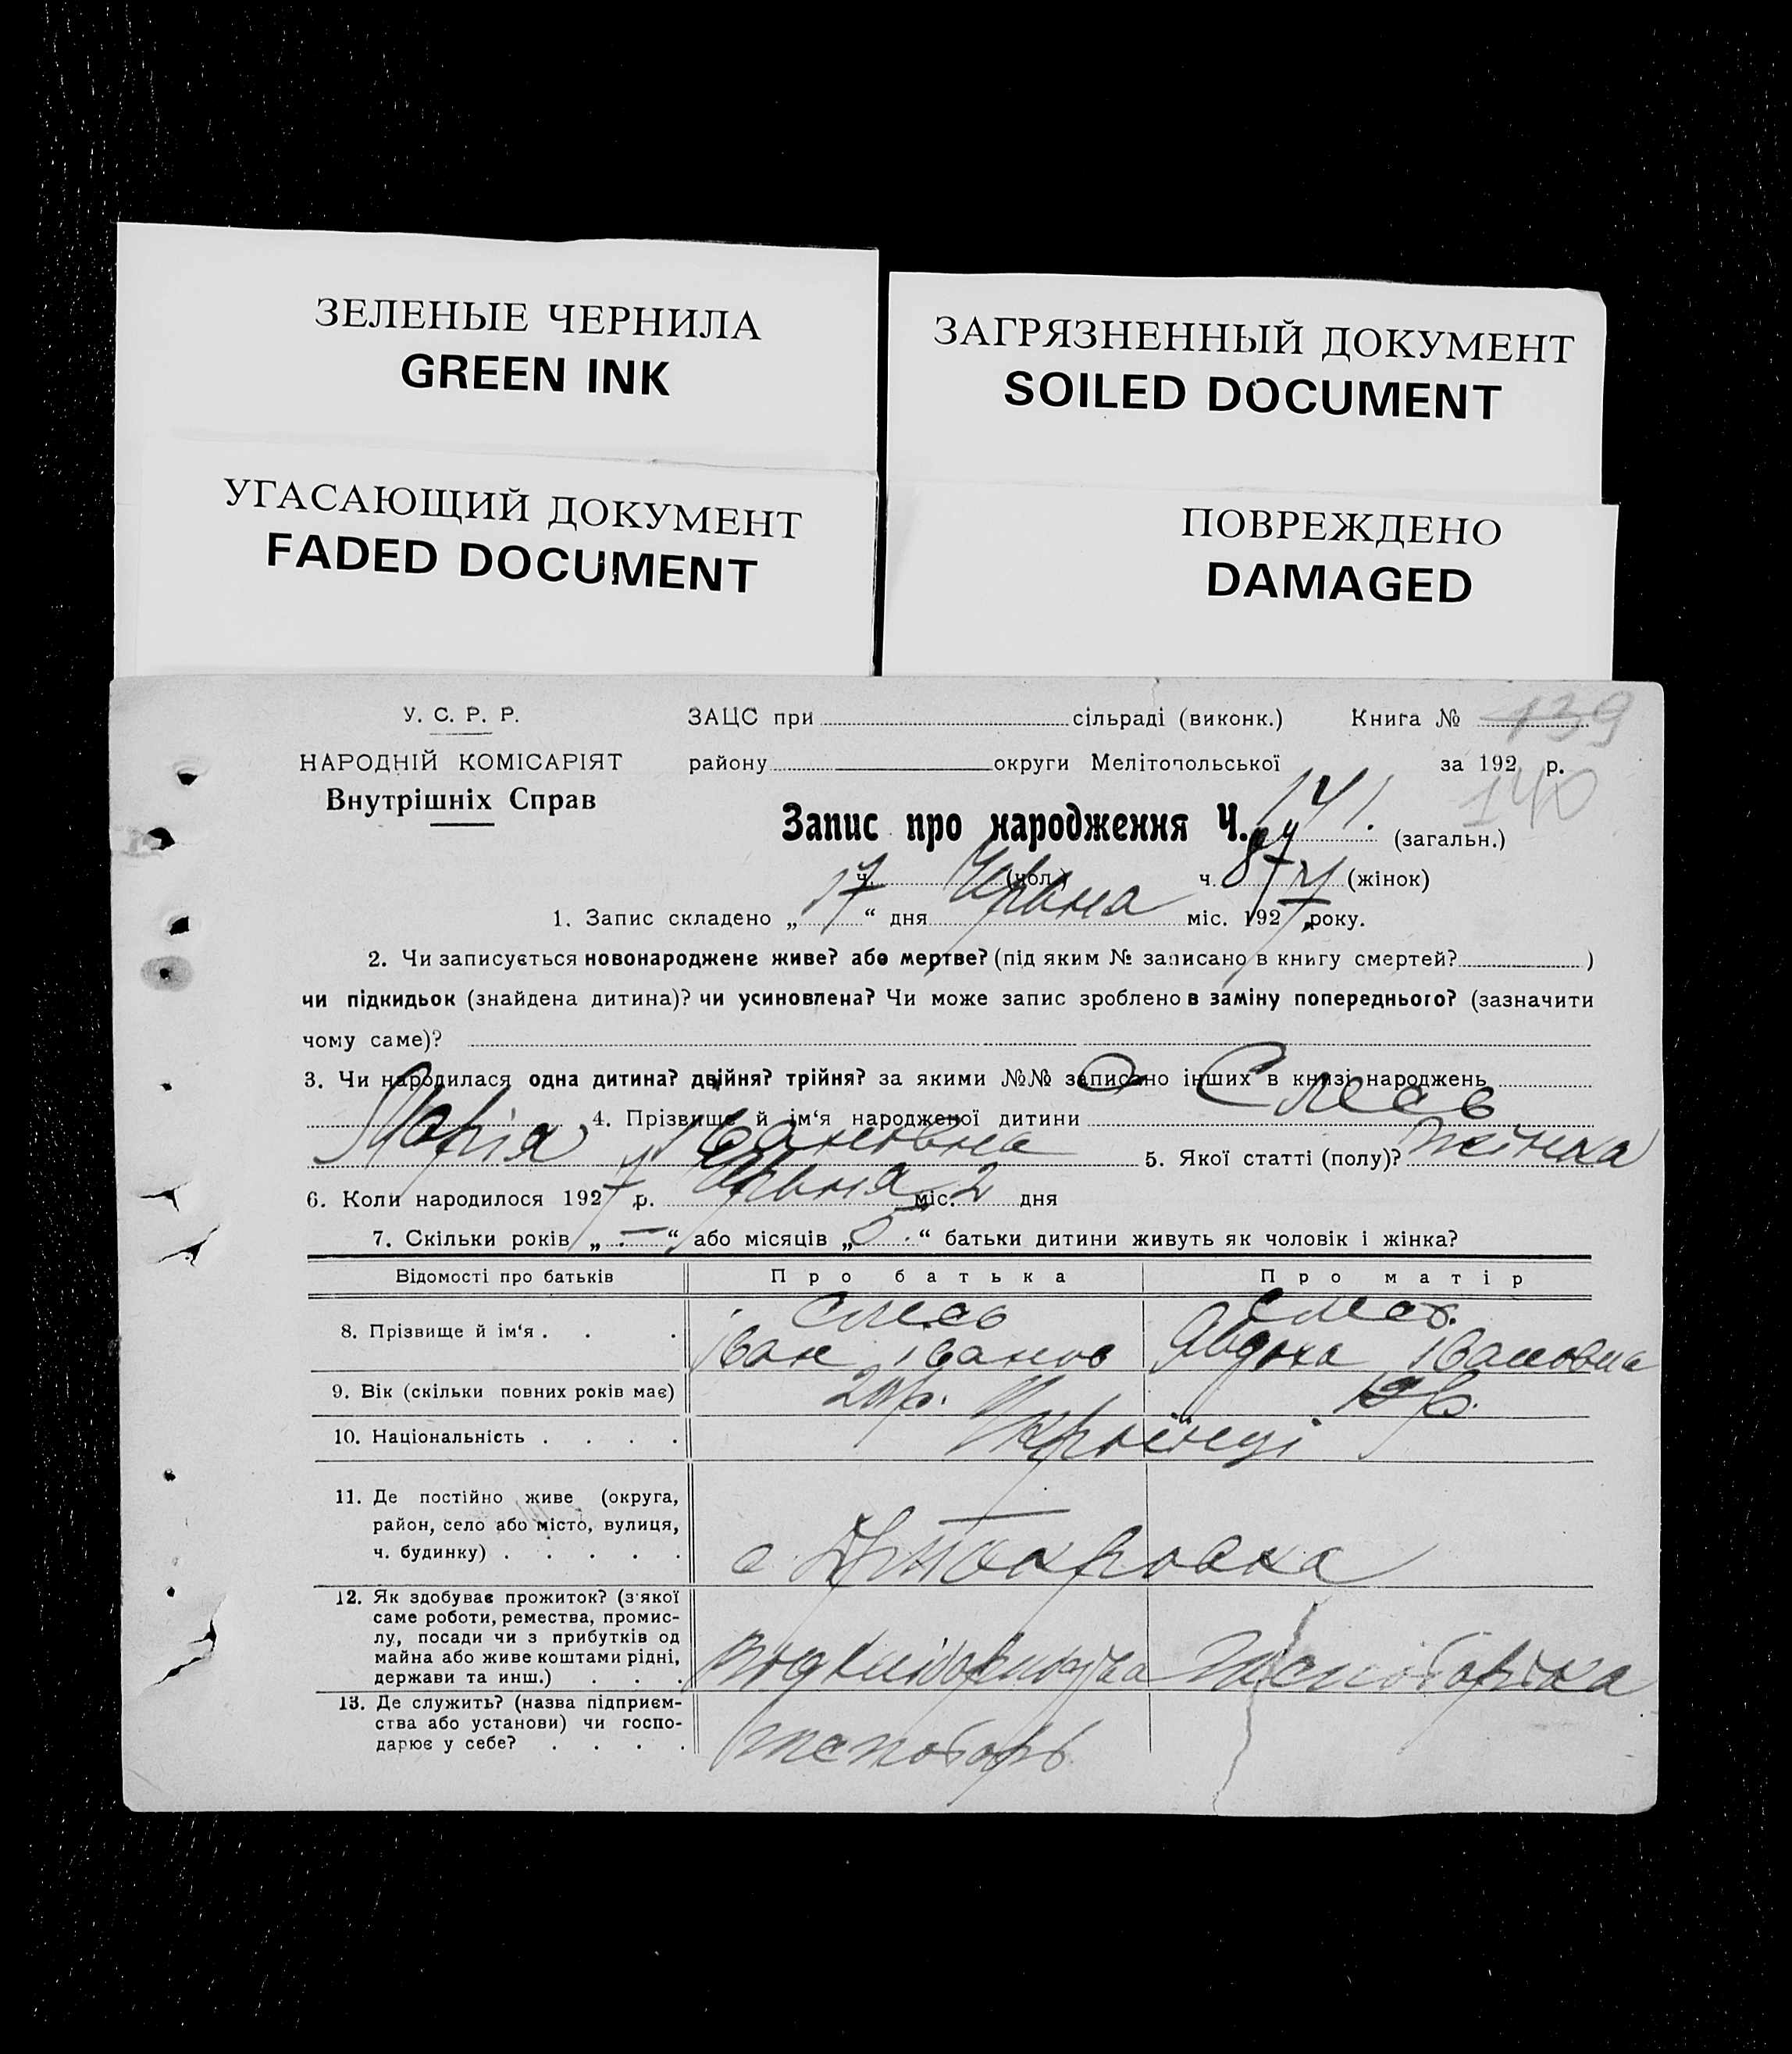 ЗЕЛЕНЫЕ ЧЕРНИЛА
GREEN INK
ЗАГРЯЗНЕННЫЙ ДОКУМЕНТ
SOILED DOCUMENT
УГАСАЮЩИЙ ДОКУМЕНТ
FADED DOCUMENT
ПОВРЕЖДЕНО
DAMAGED
У. С. Р. Р.
НАРОДНІЙ КОМІСАРІЯТ
Внутрішніх Справ
ЗАЦС при сільраді (виконк.) Книга № 139
району округи Мелітопольської за 192 р.
140
Запис про народження Ч. 141. (загальн.)
ч. (чол.) ч. 87 (жінок)
1. Запис складено „17“ дня Червня міс. 1927 року.
2. Чи записується новонароджене живе? або мертве? (під яким № записано в книгу смертей? )
чи підкидьок (знайдена дитина)? чи усиновлена? Чи може запис зроблено в заміну попереднього? (зазначити
чому саме)?
3. Чи народилася одна дитина? двійня? трійня? за якими №№ записано інших в книзі народжень
4. Прізвище й ім‘я народженої дитини Смесь
Марія Івановна 5. Якої статті (полу)? жінка
6. Коли народилося 1927 р. Червня міс. 2 дня
7. Скільки років „—“ або місяців „5“ батьки дитини живуть як чоловік і жінка?
Відомості про батьків Про батька Про матір
8. Прізвище й ім‘я . . . Смесь Іван Іванов
Явдоха Івановна
9. Вік (скільки повних років має) 20 р. 19 р.
10. Національність . . . . Українці
11. Де постійно живе (округа,
район, село або місто, вулиця,
ч. будинку) . . . . .
с.
12. Як здобуває прожиток? (з‘якої
саме роботи, ремества, промис-
лу, посади чи з прибутків од
майна або живе коштами рідні,
держави та инш.) . . .
хлеборобка
13. Де служить? (назва підприєм-
ства або установи) чи госпо-
дарює у себе? . . . .